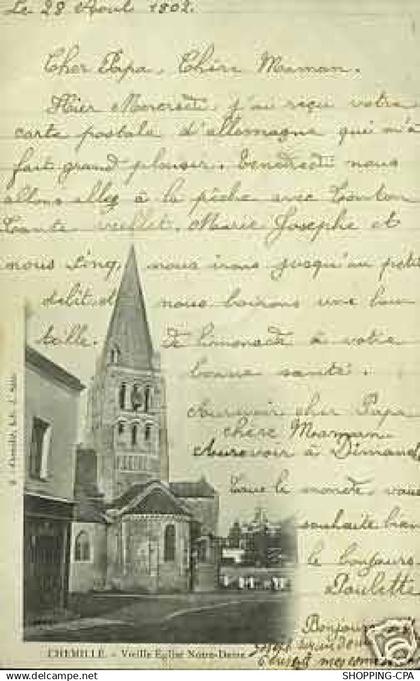 Le 28 Aout 1802.
Cher Papa, Chère Maman.
Hier Mercredi j'ai reçu votre
carte postale d'allemagne qui m'a
fait grand plaisir. Vendredi nous
allons aller à la pêche avec Tonton
Tante Marie Josephe et
nous cinq, nous irons jusqu'au petit
nous boirons une bou
teille. de limonade à votre
bonne santé.
Aurevoir cher Papa
chère Maman
Aurevoir à Dimanc
Tout le monde, vous
souhaite bien
le bonjour.
Paulette
Bonjour
CHEMILLÉ. - Vieille Église Notre-Dame
WWW.SHOPPING-CPA.COM